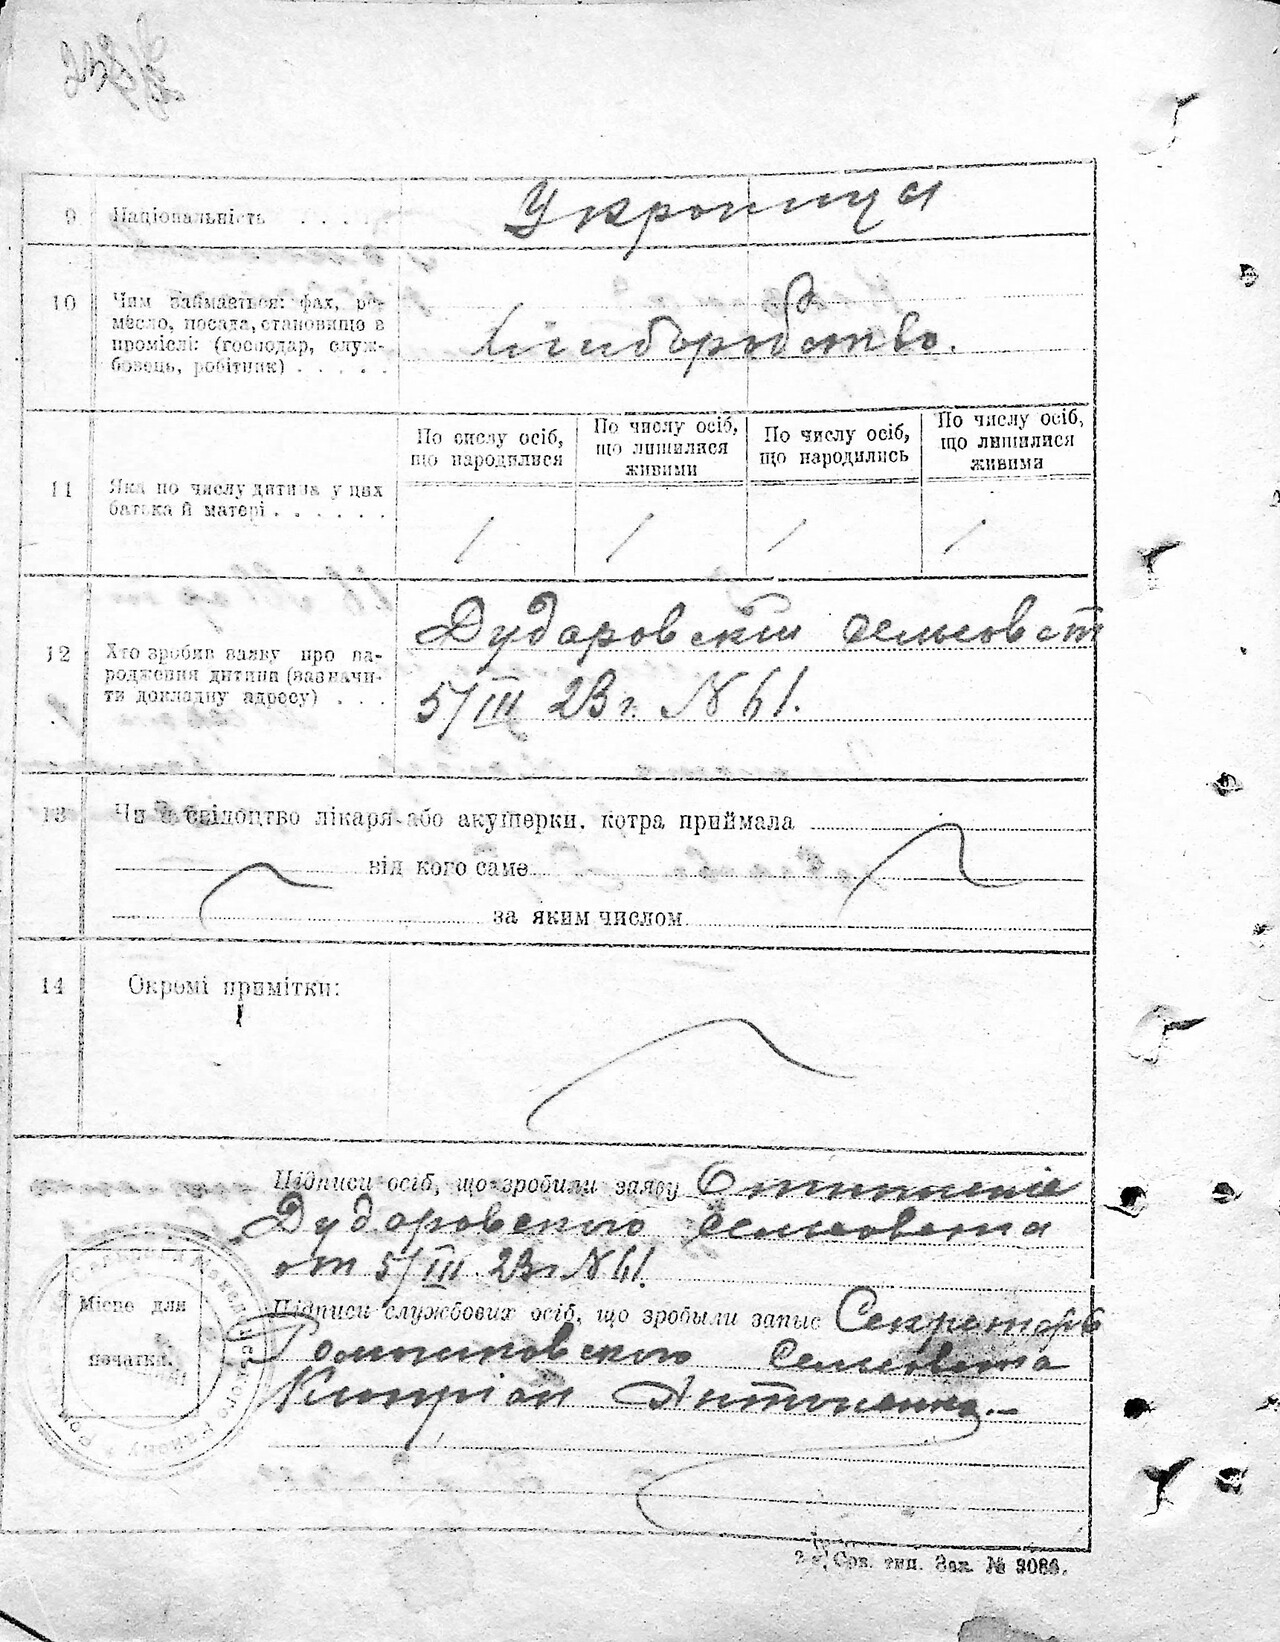 9 Національність . . . .
Украинца
10 Чим займається: фах, ре-
месло, посада, становище в
проміслі: (господар, служ-
бовець, робітник) . . . . .
Хлиборобство.
11 Яка по числу дитина у цих
батька й матері . . . . . .
По числу осіб,
що народилися
По числу осіб,
що лишилися
живими
По числу осіб,
що народились
По числу осіб,
що лишилися
живими
/ / / /
12 Хто зробив заяву про на-
родження дитини (зазначи-
ти докладну адресу) . . .
Дударовский сельсовет
5/III 23 г. N 61.
13 Чи є свідоцтво лікаря або акушерки, котра приймала
від кого саме
за яким числом
14 Окромі примітки:
Підписи осіб, що зробили заяву Отношение
Дударовского сельсовета
от 5/III 23 г N 61.
Місце для
печатки.
Підписи службових осіб, що зробили запис Секретарь
сельсовета
Антоненко.
Зак. № 3086.